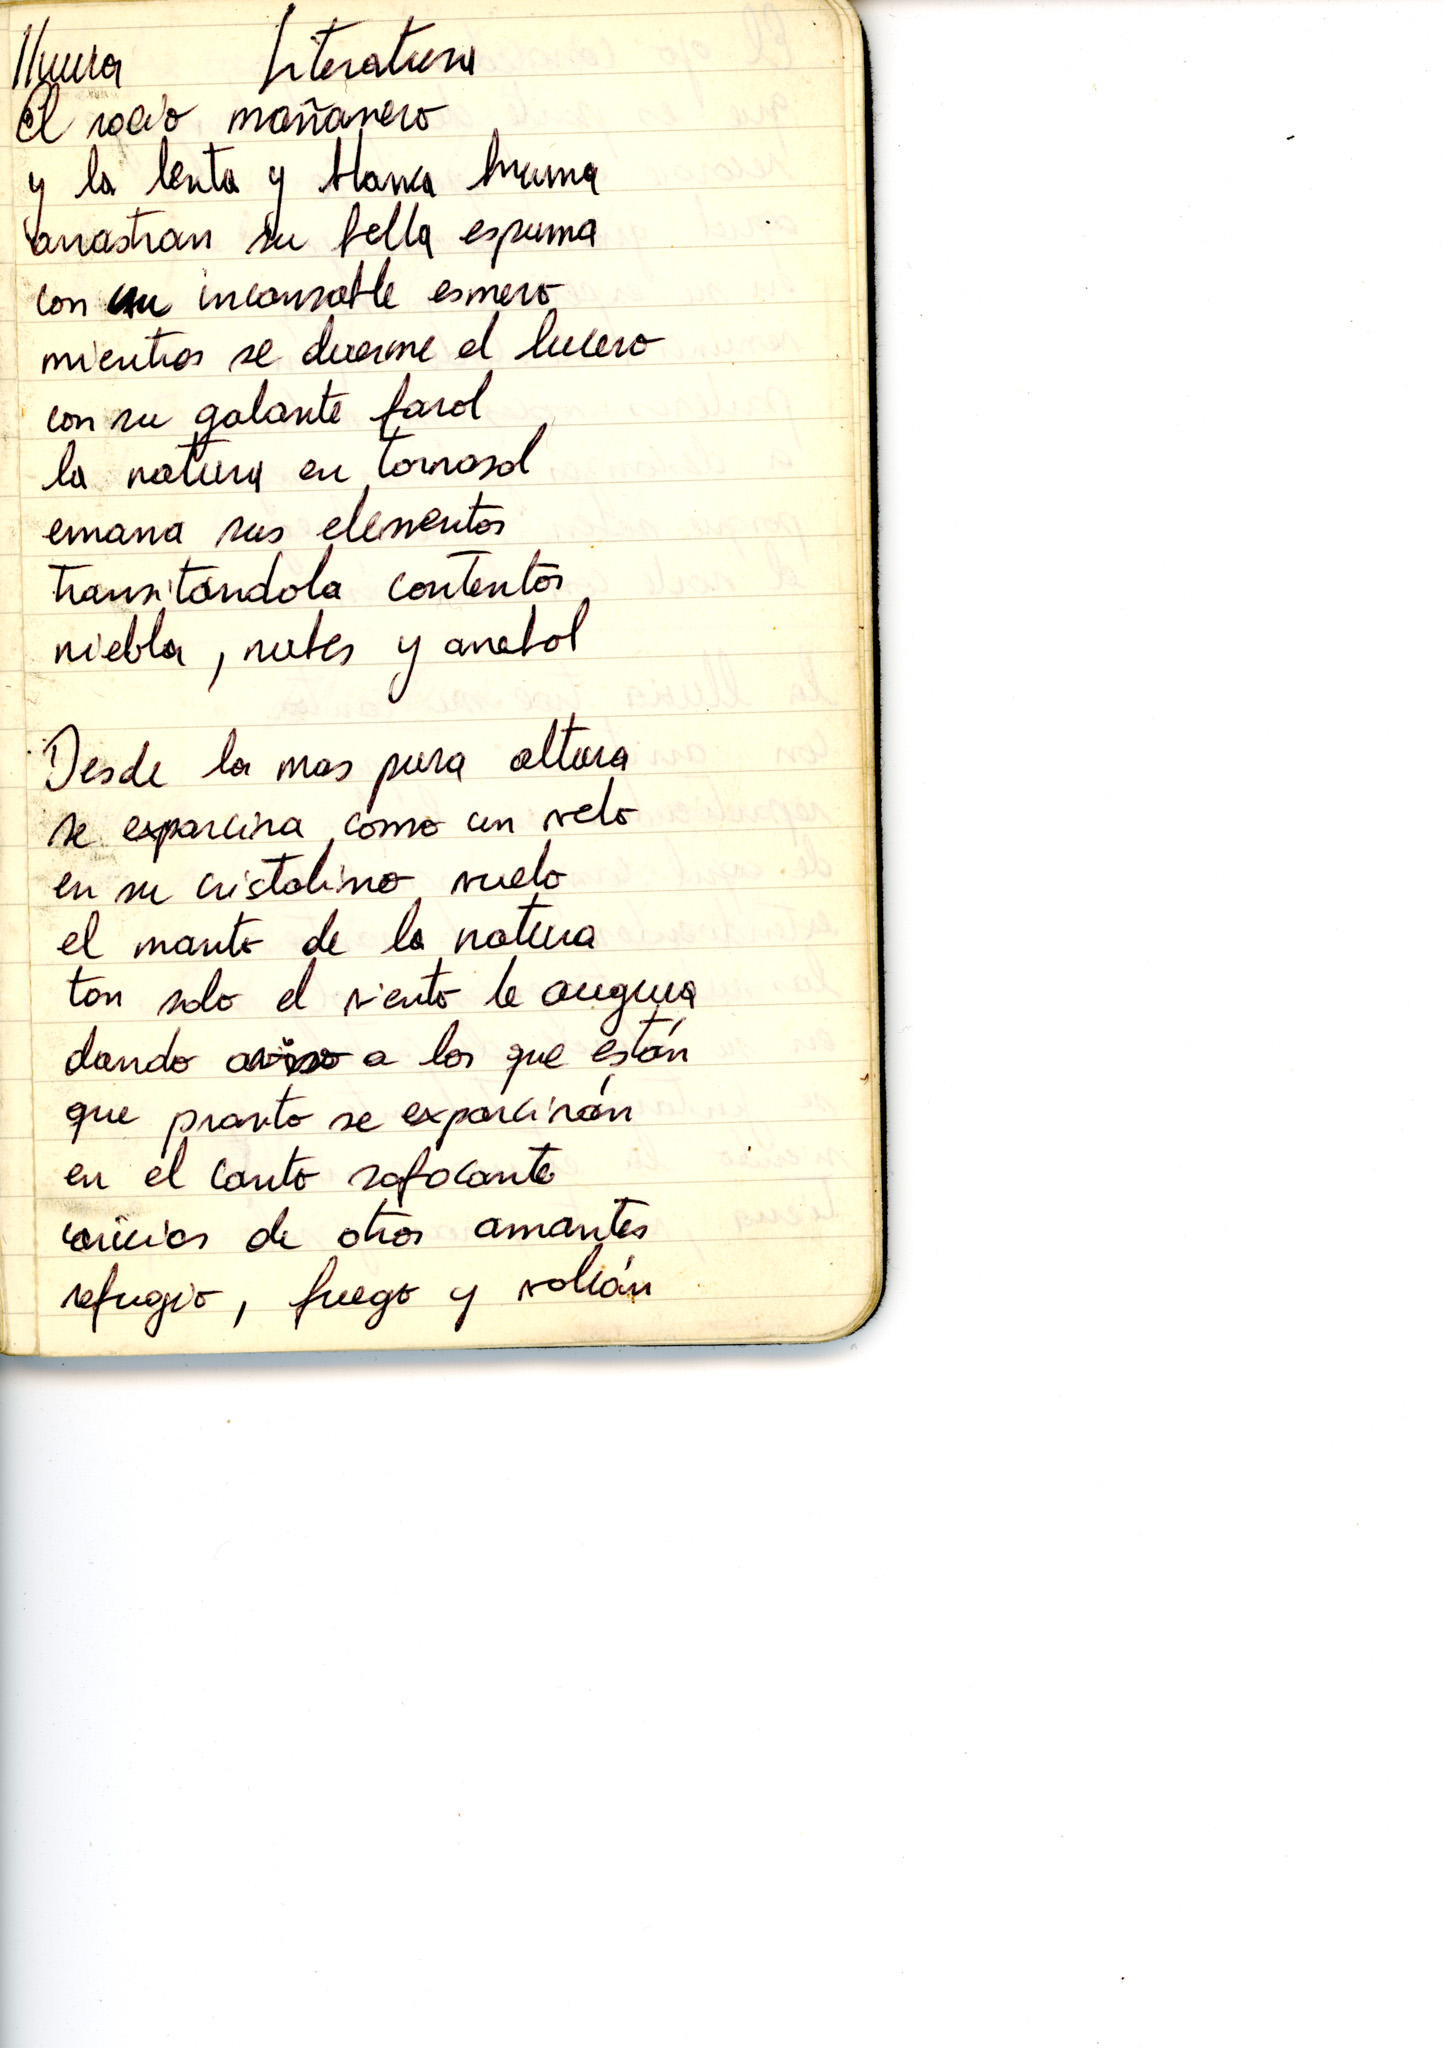 lluvia Literatura
El rocío mañanero
y la lenta y blanca bruma
arrastran su bella espuma
con su incansable esmero
mientras se duerme el lucero
con su galante farol
la natura en tornasol
emana sus elementos
transitándola contentos
niebla, nubes y arrebol
Desde la mas pura altura
se exparcira como un velo
en su cristalino vuelo
el manto de la natura
tan solo el viento le augura
dando aviso a los que están
que pronto se exparcirán
en el canto sofocante
caricias de otros amantes
refugio, fuego y volcán